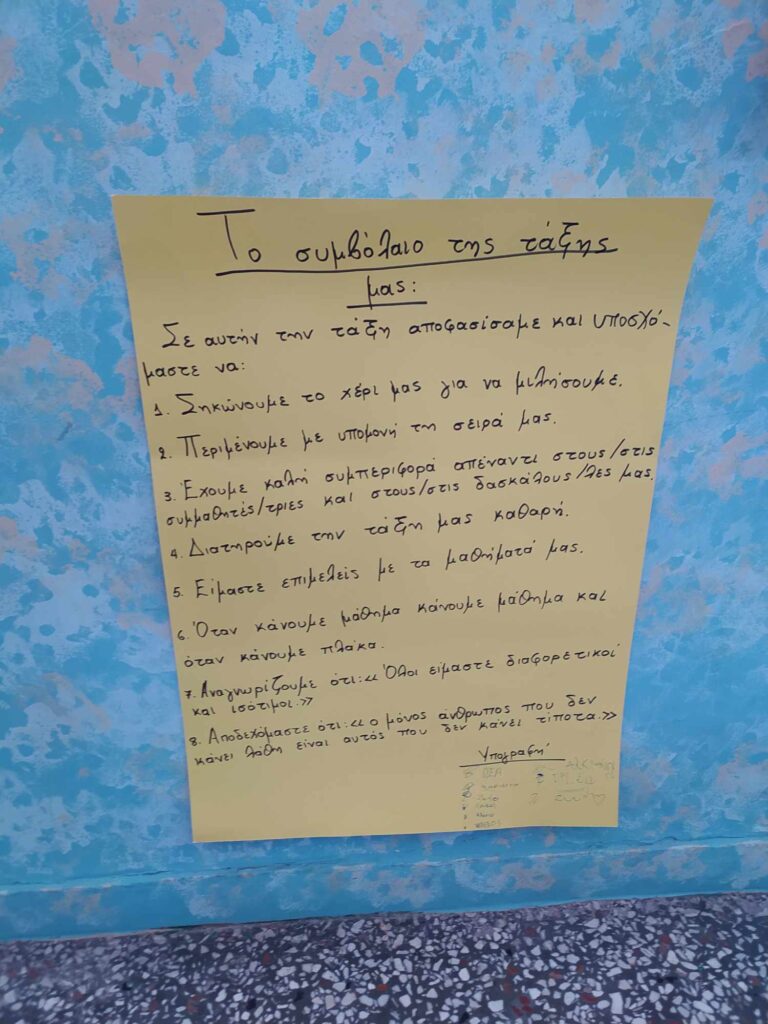 Το συμβόλαιο της τάξης
μας:
Σε αυτήν την τάξη αποφασίσαμε και υποσχό-
μαστε να:
1. Σηκώνουμε το χέρι μας για να μιλήσουμε.
2. Περιμένουμε με υπομονή τη σειρά μας.
3. Έχουμε καλή συμπεριφορά απέναντι στους/στις
συμμαθητές/τριες και στους/στις δασκάλους/λες μας.
4. Διατηρούμε την τάξη μας καθαρή.
5. Είμαστε επιμελείς με τα μαθήματά μας.
6. Όταν κάνουμε μάθημα κάνουμε μάθημα και
όταν κάνουμε πλάκα.
7. Αναγνωρίζουμε ότι:«Όλοι είμαστε διαφορετικοί
και ισότιμοι.»
8. Αποδεχόμαστε ότι:«ο μόνος άνθρωπος που δεν
κάνει λάθη είναι αυτός που δεν κάνει τίποτα.»
Υπογραφή